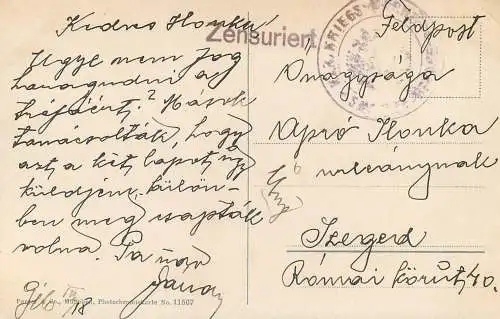 Kedves Ilonka!
Ugye nem fog
haragudni a
tréfáért? Mások
tanácsolták, hogy
azt a két lapot úgy
küldjem, külön-
ben meg csapták
volna. Pa
Zensuriert
K.u.K. KRIEGS-
Feldpost
Önagysága
Apró Ilonka
urleánynak
Szeged
Római körut 40.
Photochromiekarte No. 11507